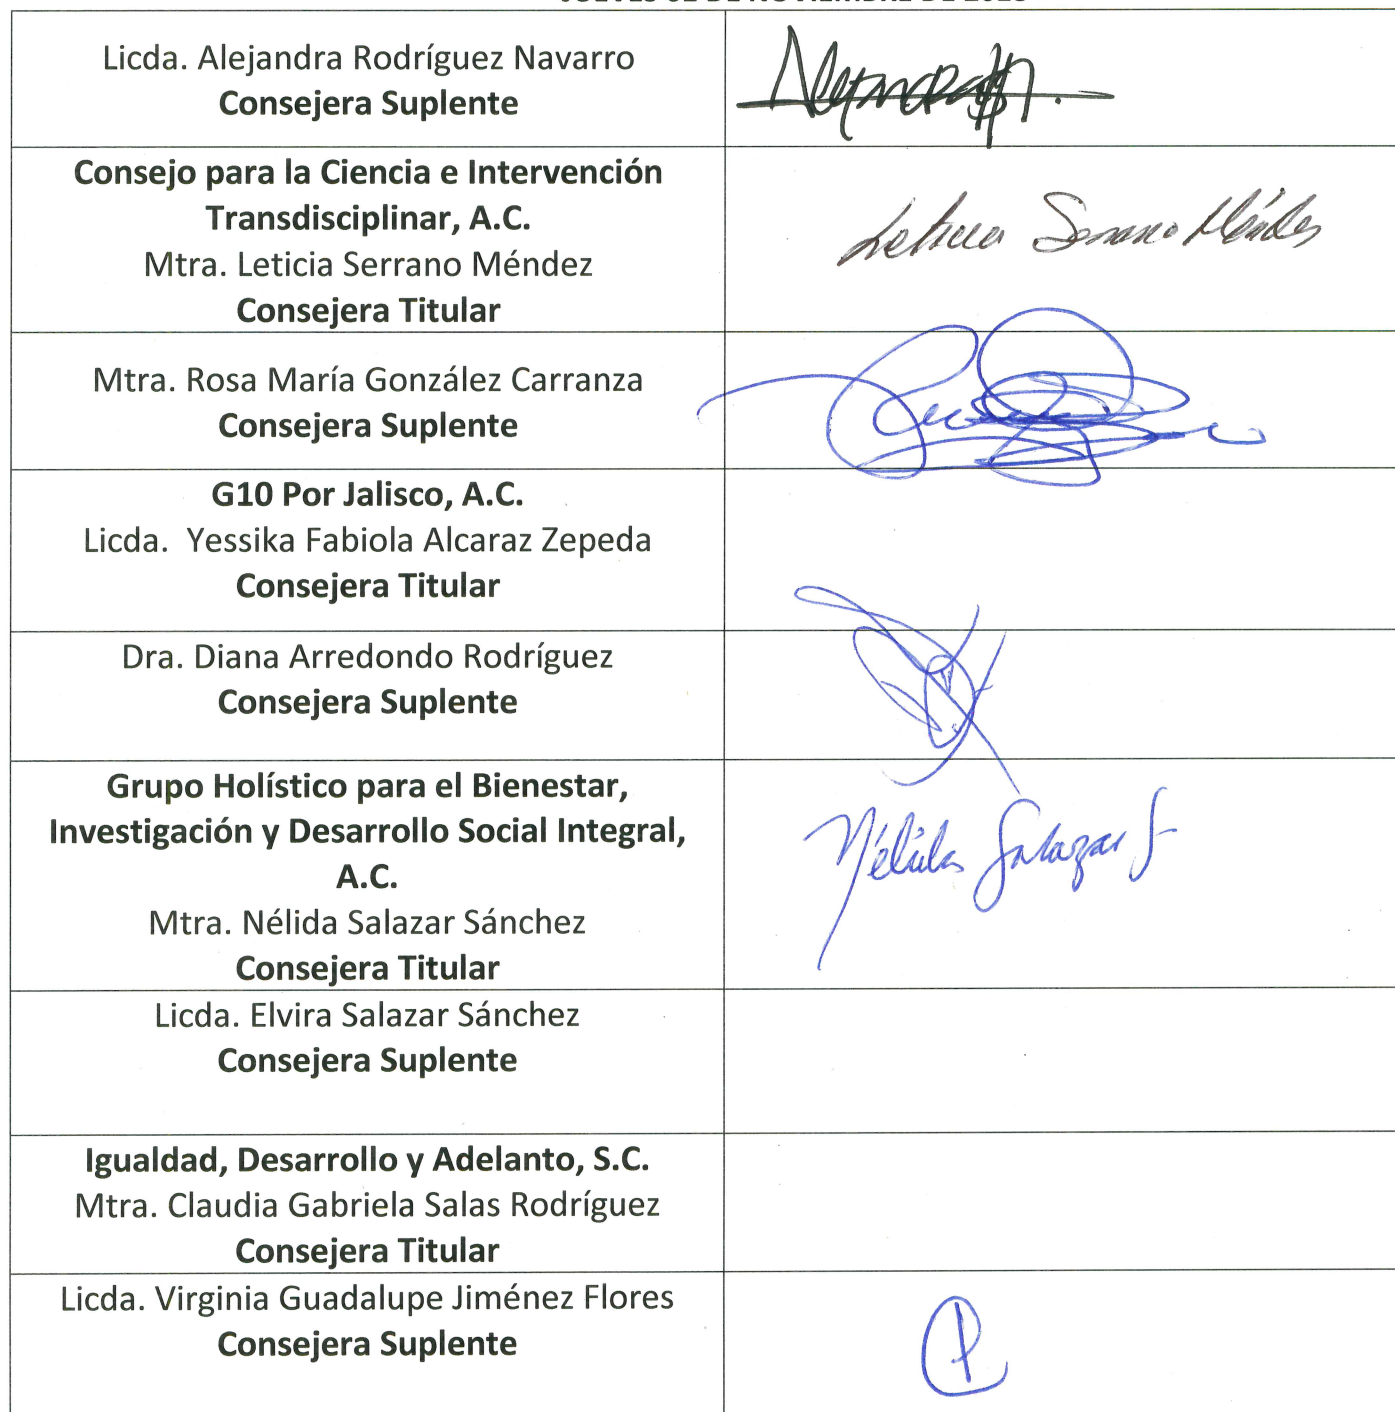 Licda. Alejandra Rodríguez Navarro
Consejera Suplente
Consejo para la Ciencia e Intervención
Transdisciplinar, A.C.
Mtra. Leticia Serrano Méndez
Consejera Titular
Leticia Serrano Méndez
Mtra. Rosa María González Carranza
Consejera Suplente
G10 Por Jalisco, A.C.
Licda. Yessika Fabiola Alcaraz Zepeda
Consejera Titular
Dra. Diana Arredondo Rodríguez
Consejera Suplente
Grupo Holístico para el Bienestar,
Investigación y Desarrollo Social Integral,
A.C.
Mtra. Nélida Salazar Sánchez
Consejera Titular
Nélida Salazar S
Licda. Elvira Salazar Sánchez
Consejera Suplente
Igualdad, Desarrollo y Adelanto, S.C.
Mtra. Claudia Gabriela Salas Rodríguez
Consejera Titular
Licda. Virginia Guadalupe Jiménez Flores
Consejera Suplente